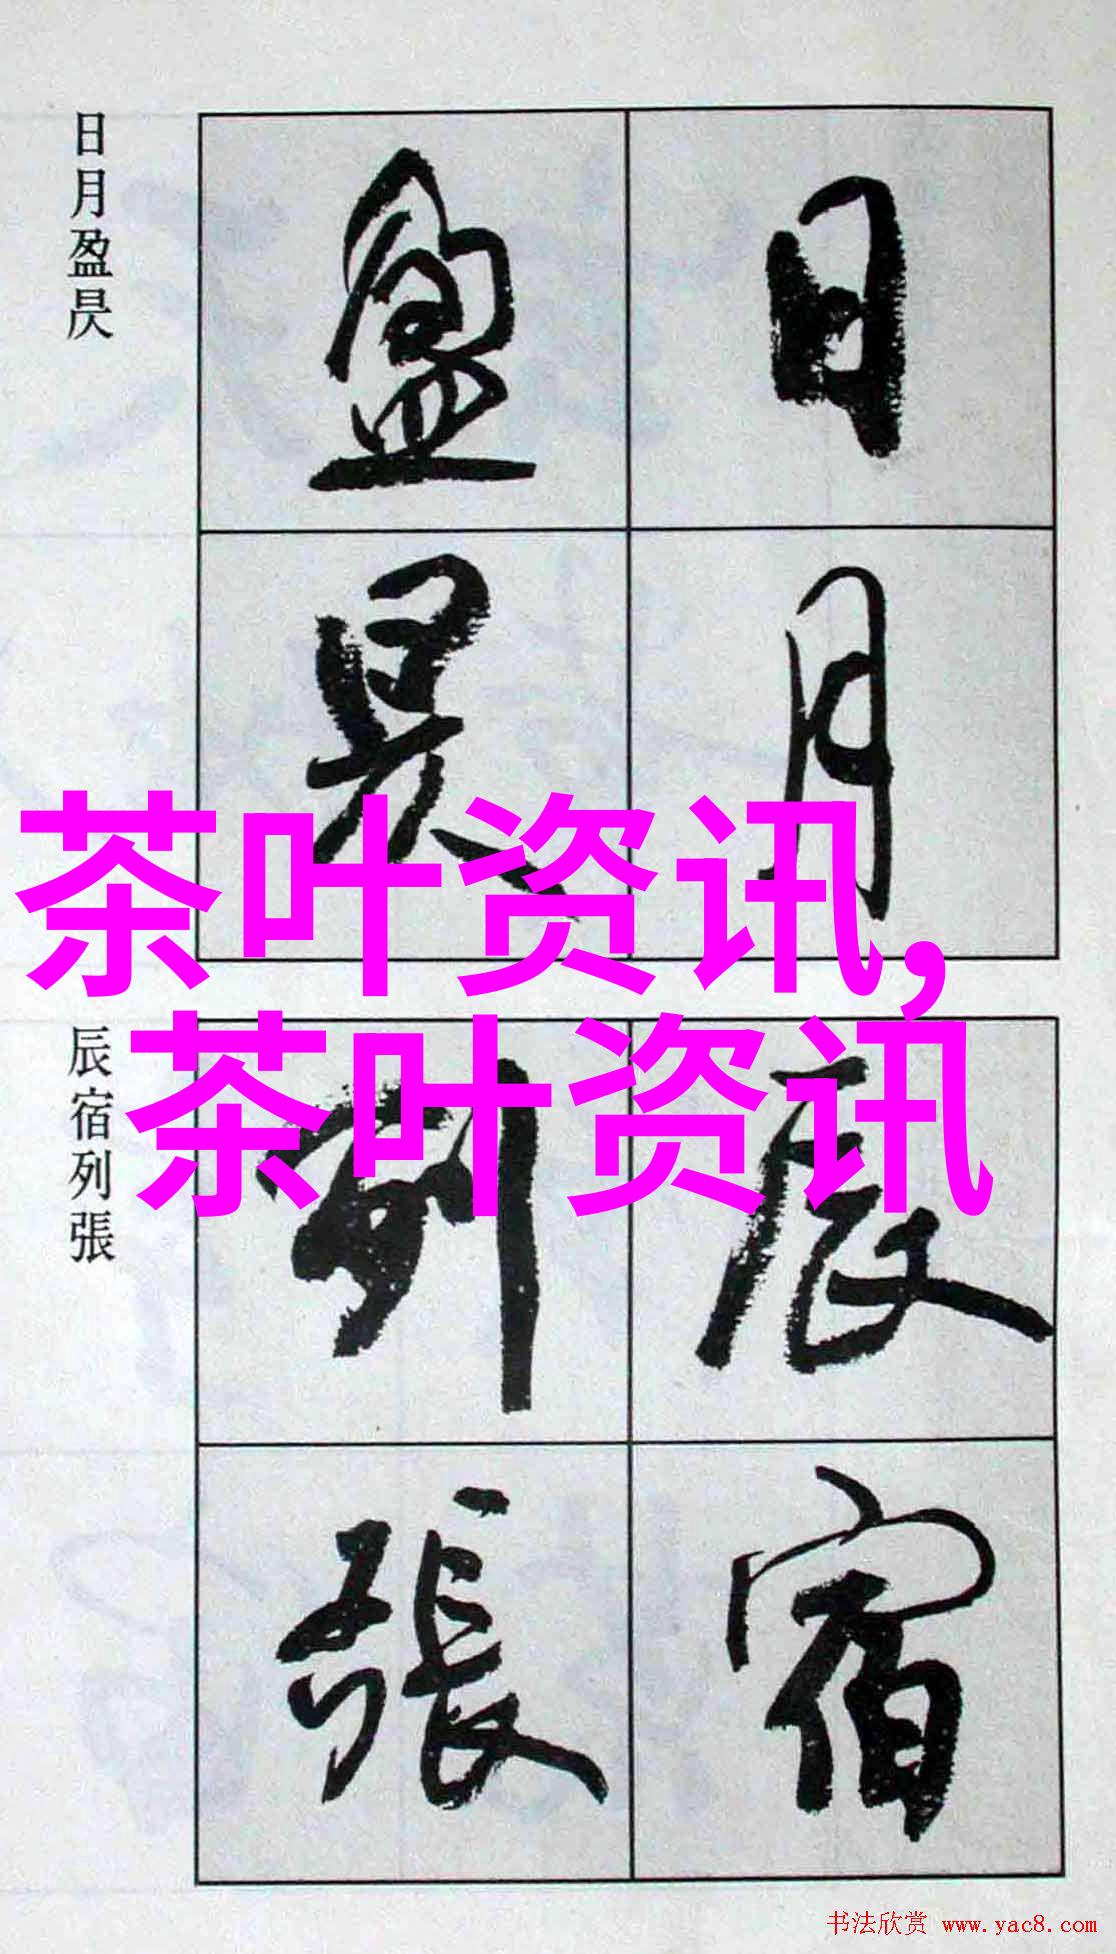 日月
盈昃
日月盈昃
茶叶资讯,
茶叶资讯
辰宿
列張
辰宿列張
书法欣赏 www.yac8.com